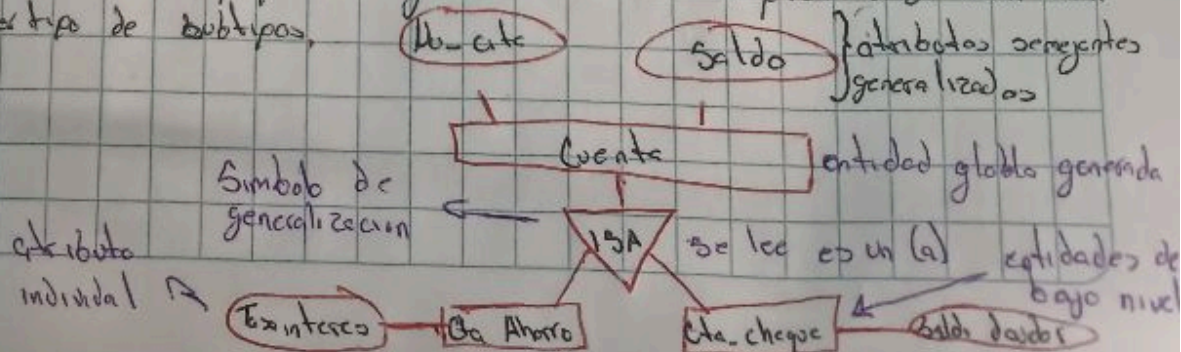 tipo de subtipos.
No_cta Saldo } atributos semejantes
generalizados
Cuenta entidad globlo generada
Simbolo de
generalizacion
ISA se lee es un (a) entidades de
bajo nivel
atributo
individal
Tasinteres Cta Ahorro Cta_cheque Saldo deudor